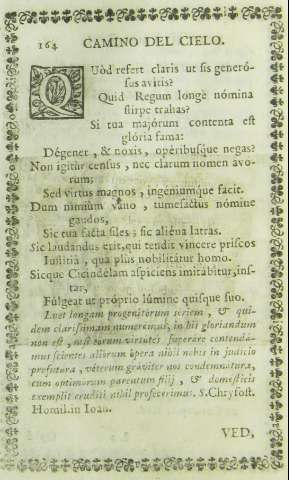 164 CAMINO DEL CIELO.
QUòd refert claris ut sis generó-
sus avitis?
Quid Regum longè nómina
stirpe trahas?
Si tua majórum contenta est
glória fama:
Dégener, & noxis, opéribusque negas?
Non igitúr census, nec clarum nomen avo-
rum;
Sed virtus magnos, ingeniumque facit.
Dum nimiùm vano, tumefactus nómine
gaudes,
Sic tua facta siles; sic aliéna latras.
Sic laudandus erit, qui tendit vincere priscos
Iustitiâ, qua plus nobilitátur homo.
Sicque Cicindelam aspiciens imitábitur, ins-
tar,
Fúlgeat ut próprio lúmine quisque suo.
Licet longam progenitorum seriem, & qui-
dem clarissimam numeremus, in his gloriandum
non est, nisi eorum virtutes superare contendá-
mus scientes aliorum ópera nihil nobis in judicio
profutura, véterum gráviter nos condemnatura,
cum optimorum parentum filij, & domesticis
exemplis eruditi nihil profecerimus. S. Chrysost.
Homil. in Ioan.
VED,